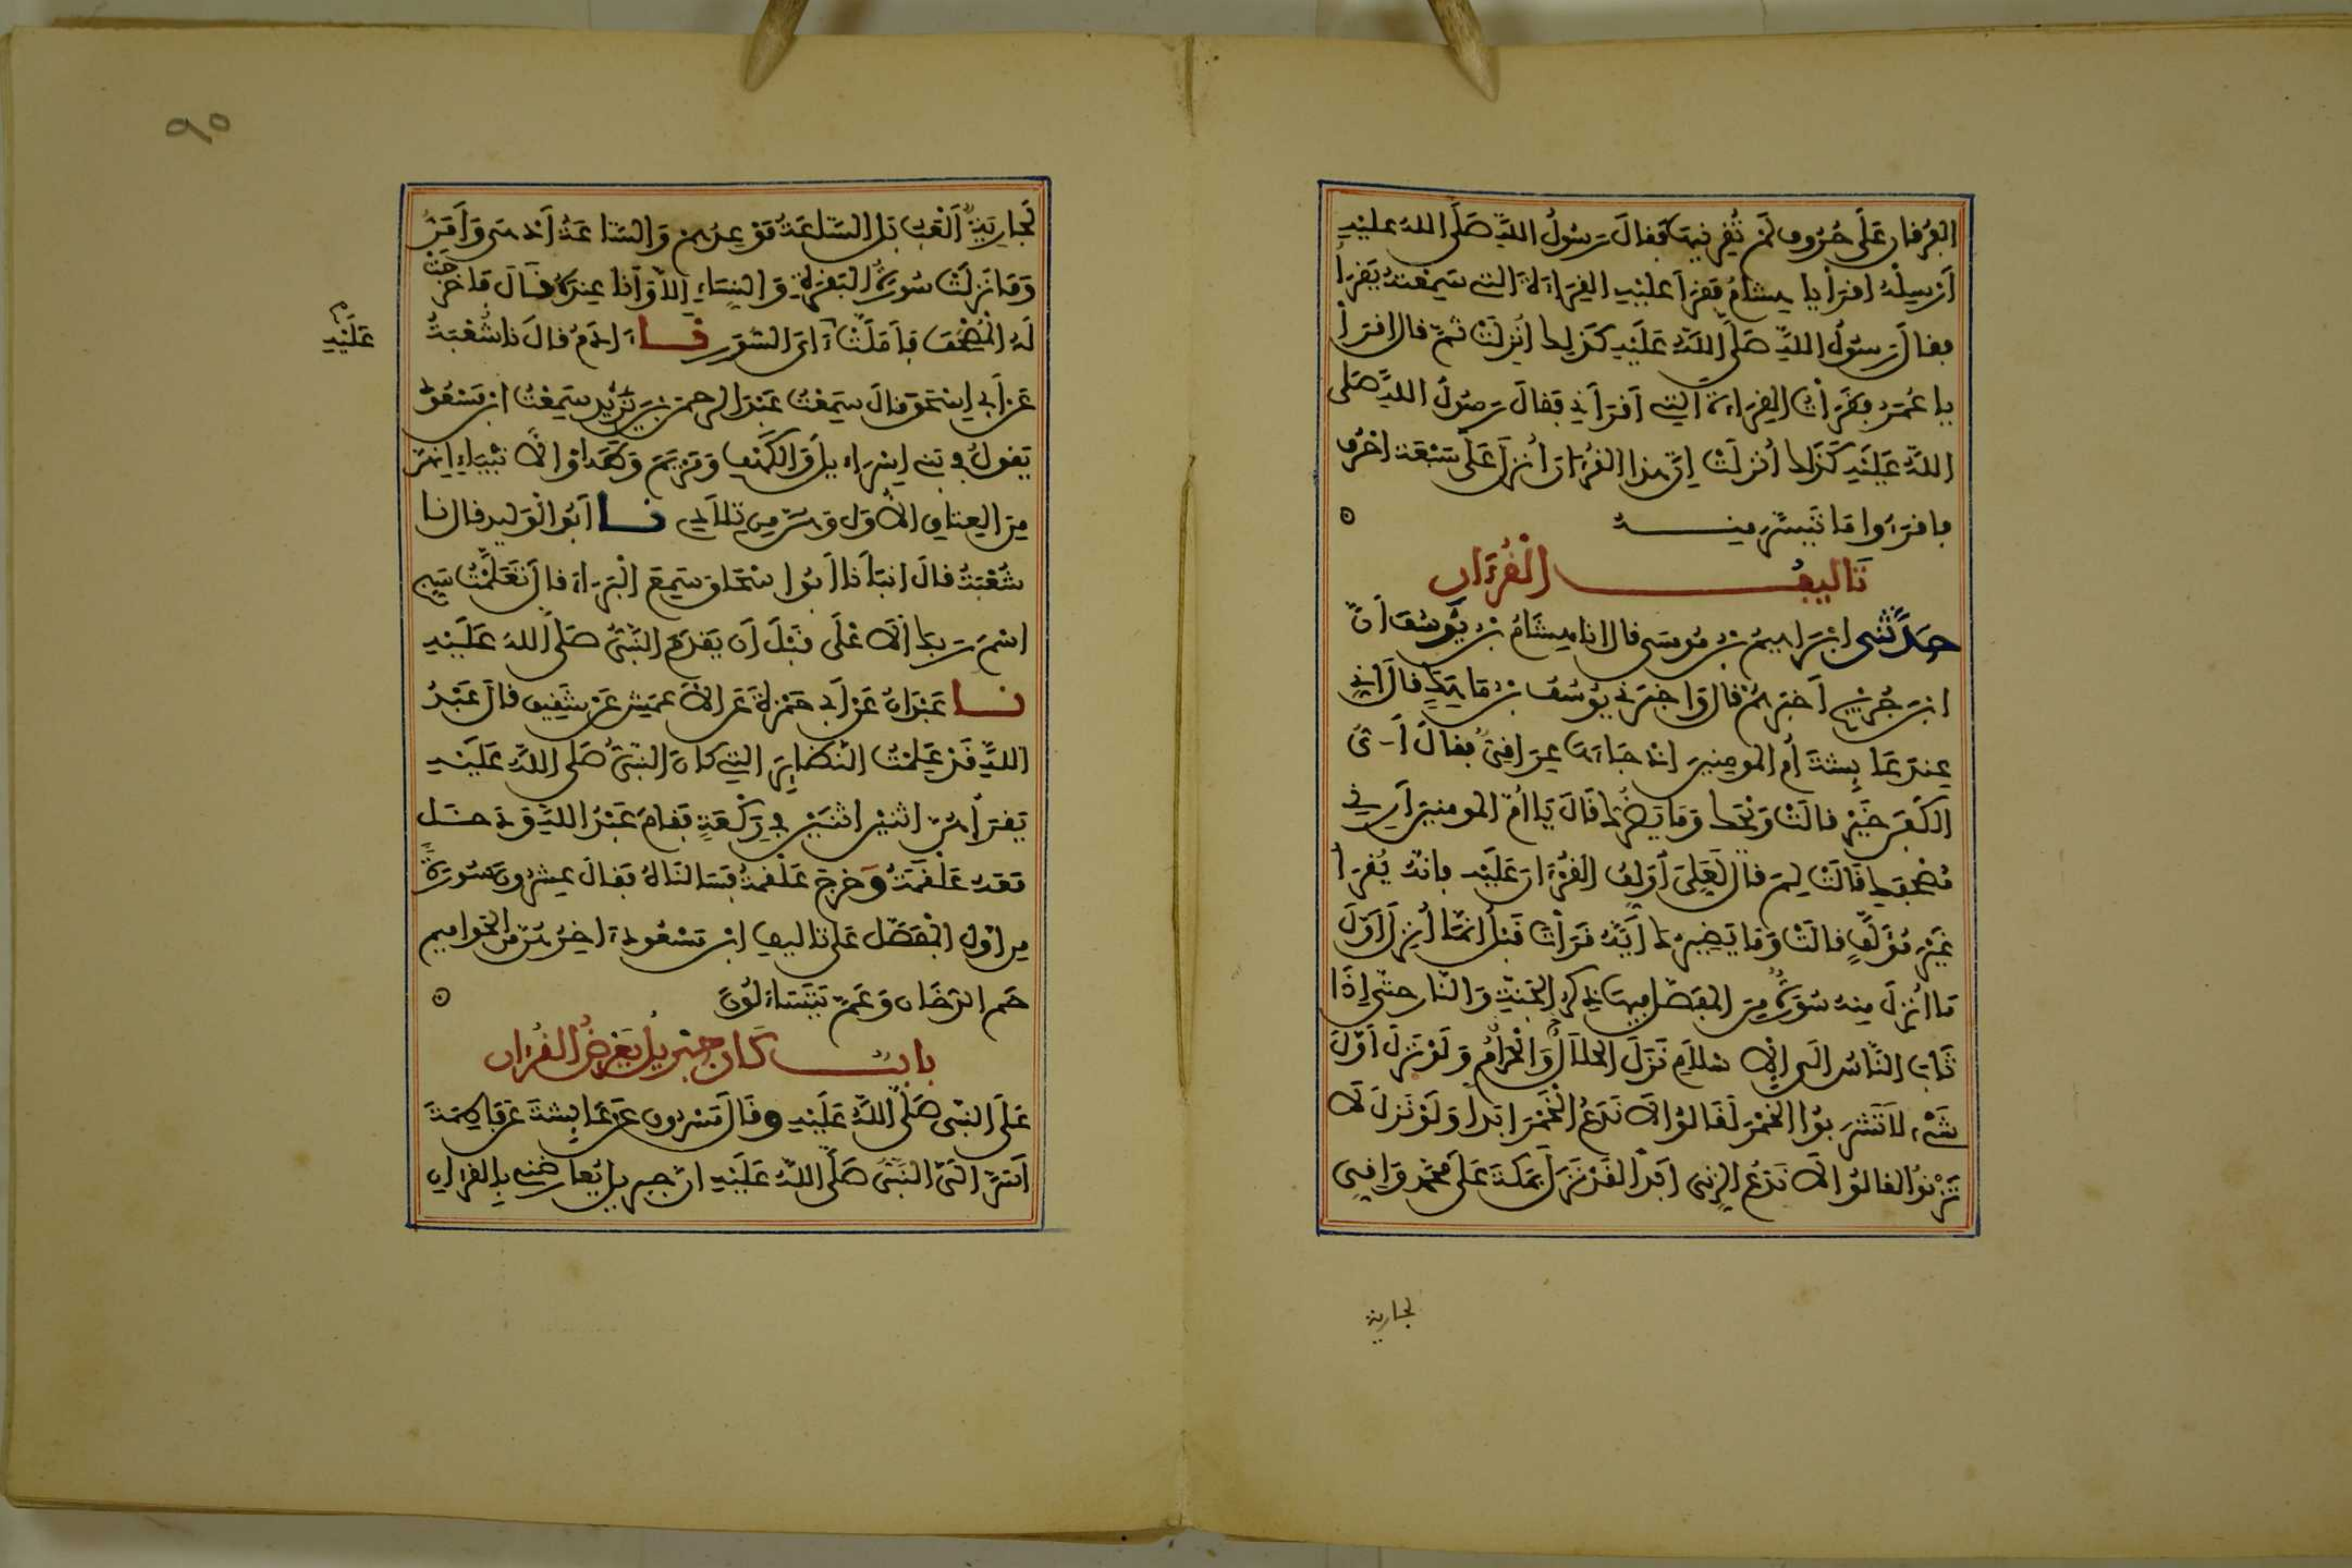 الفرقان على حروف لم تقرنيها فقال رسول الله صلى الله عليه
أرسله اقرأ يا هشام فقرأ عليه القراءة التي سمعته يقرأ
فقال رسول الله صلى الله عليه كذلك أنزلت ثم قال اقرأ
يا عمر فقرأت القراءة التي أقرأني فقال رسول الله صلى
الله عليه كذلك أنزلت إن هذا القرءان أنزل على سبعة احرف
فاقرءوا ما تيسر منه
تاليف القرءان
حدثني ابراهيم بن موسى قال انا هشام بن يوسف أن
ابن جريج أخبرهم قال وأخبرني يوسف بن ماهك قال اني
عند عائشة أم المومنين اذ جاءها عراقي فقال أي
الكفن خير قالت ويحك وما يضرك قال يا أم المومنين أريني
مصحفك قالت لم قال لعلي أولف القرءان عليه فانه يقرأ
غير مؤلف قالت وما يضيرك أيه قرأت قبل انما أنزل أول
ما أنزل منه سورة من المفصل فيها ذكر الجنة والنار حتى إذا
ثاب الناس الى الاسلام نزل الحلال والحرام ولو نزل أول
شيء لا تشربوا الخمر لقالوا لا ندع الخمر ابدا ولو نزل لا
تزنوا لقالوا لا ندع الزنى أبدا لقد نزل بمكة على محمد وإني
لجارية
٩٥
لجارية ألعب بل الساعة موعدهم والساعة أدهى وأمر
وما نزلت سورة البقرة والنساء إلا وأنا عنده قال فاخرجت
له المصحف فأملت ءاي السور نا ءادم قال نا شعبة
عليه
عن أبي إسحق قال سمعت عبد الرحمن بن يزيد سمعت ابن مسعود
يقول في بني إسراءيل والكهف ومريم وطه والانبياء إنهن
من العتاق الاول وهن من تلادي نا أبو الوليد قال نا
شعبة قال انبأنا أبو اسحاق سمع البراء قال تعلمت سبح
اسم ربك الاعلى قبل أن يقدم النبي صلى الله عليه
نا عبدان عن أبي حمزة عن الاعمش عن شقيق قال عبد
الله قد علمت النظاير التي كان النبي صلى الله عليه
يقرأهن اثنين اثنين في ركعة فقام عبد الله ودخل
معه علقمة وخرج علقمة فسألناه فقال عشرون سورة
من اول المفصل على تاليف ابن مسعود ءاخرهن من الحواميم
حم الدخان وعم يتساءلون
باب كان جبريل يعرض القرءان
على النبي صلى الله عليه وقال مسروق عن عايشة عن فاطمة
أسر الي النبي صلى الله عليه ان جبريل يعارضني بالقرءان